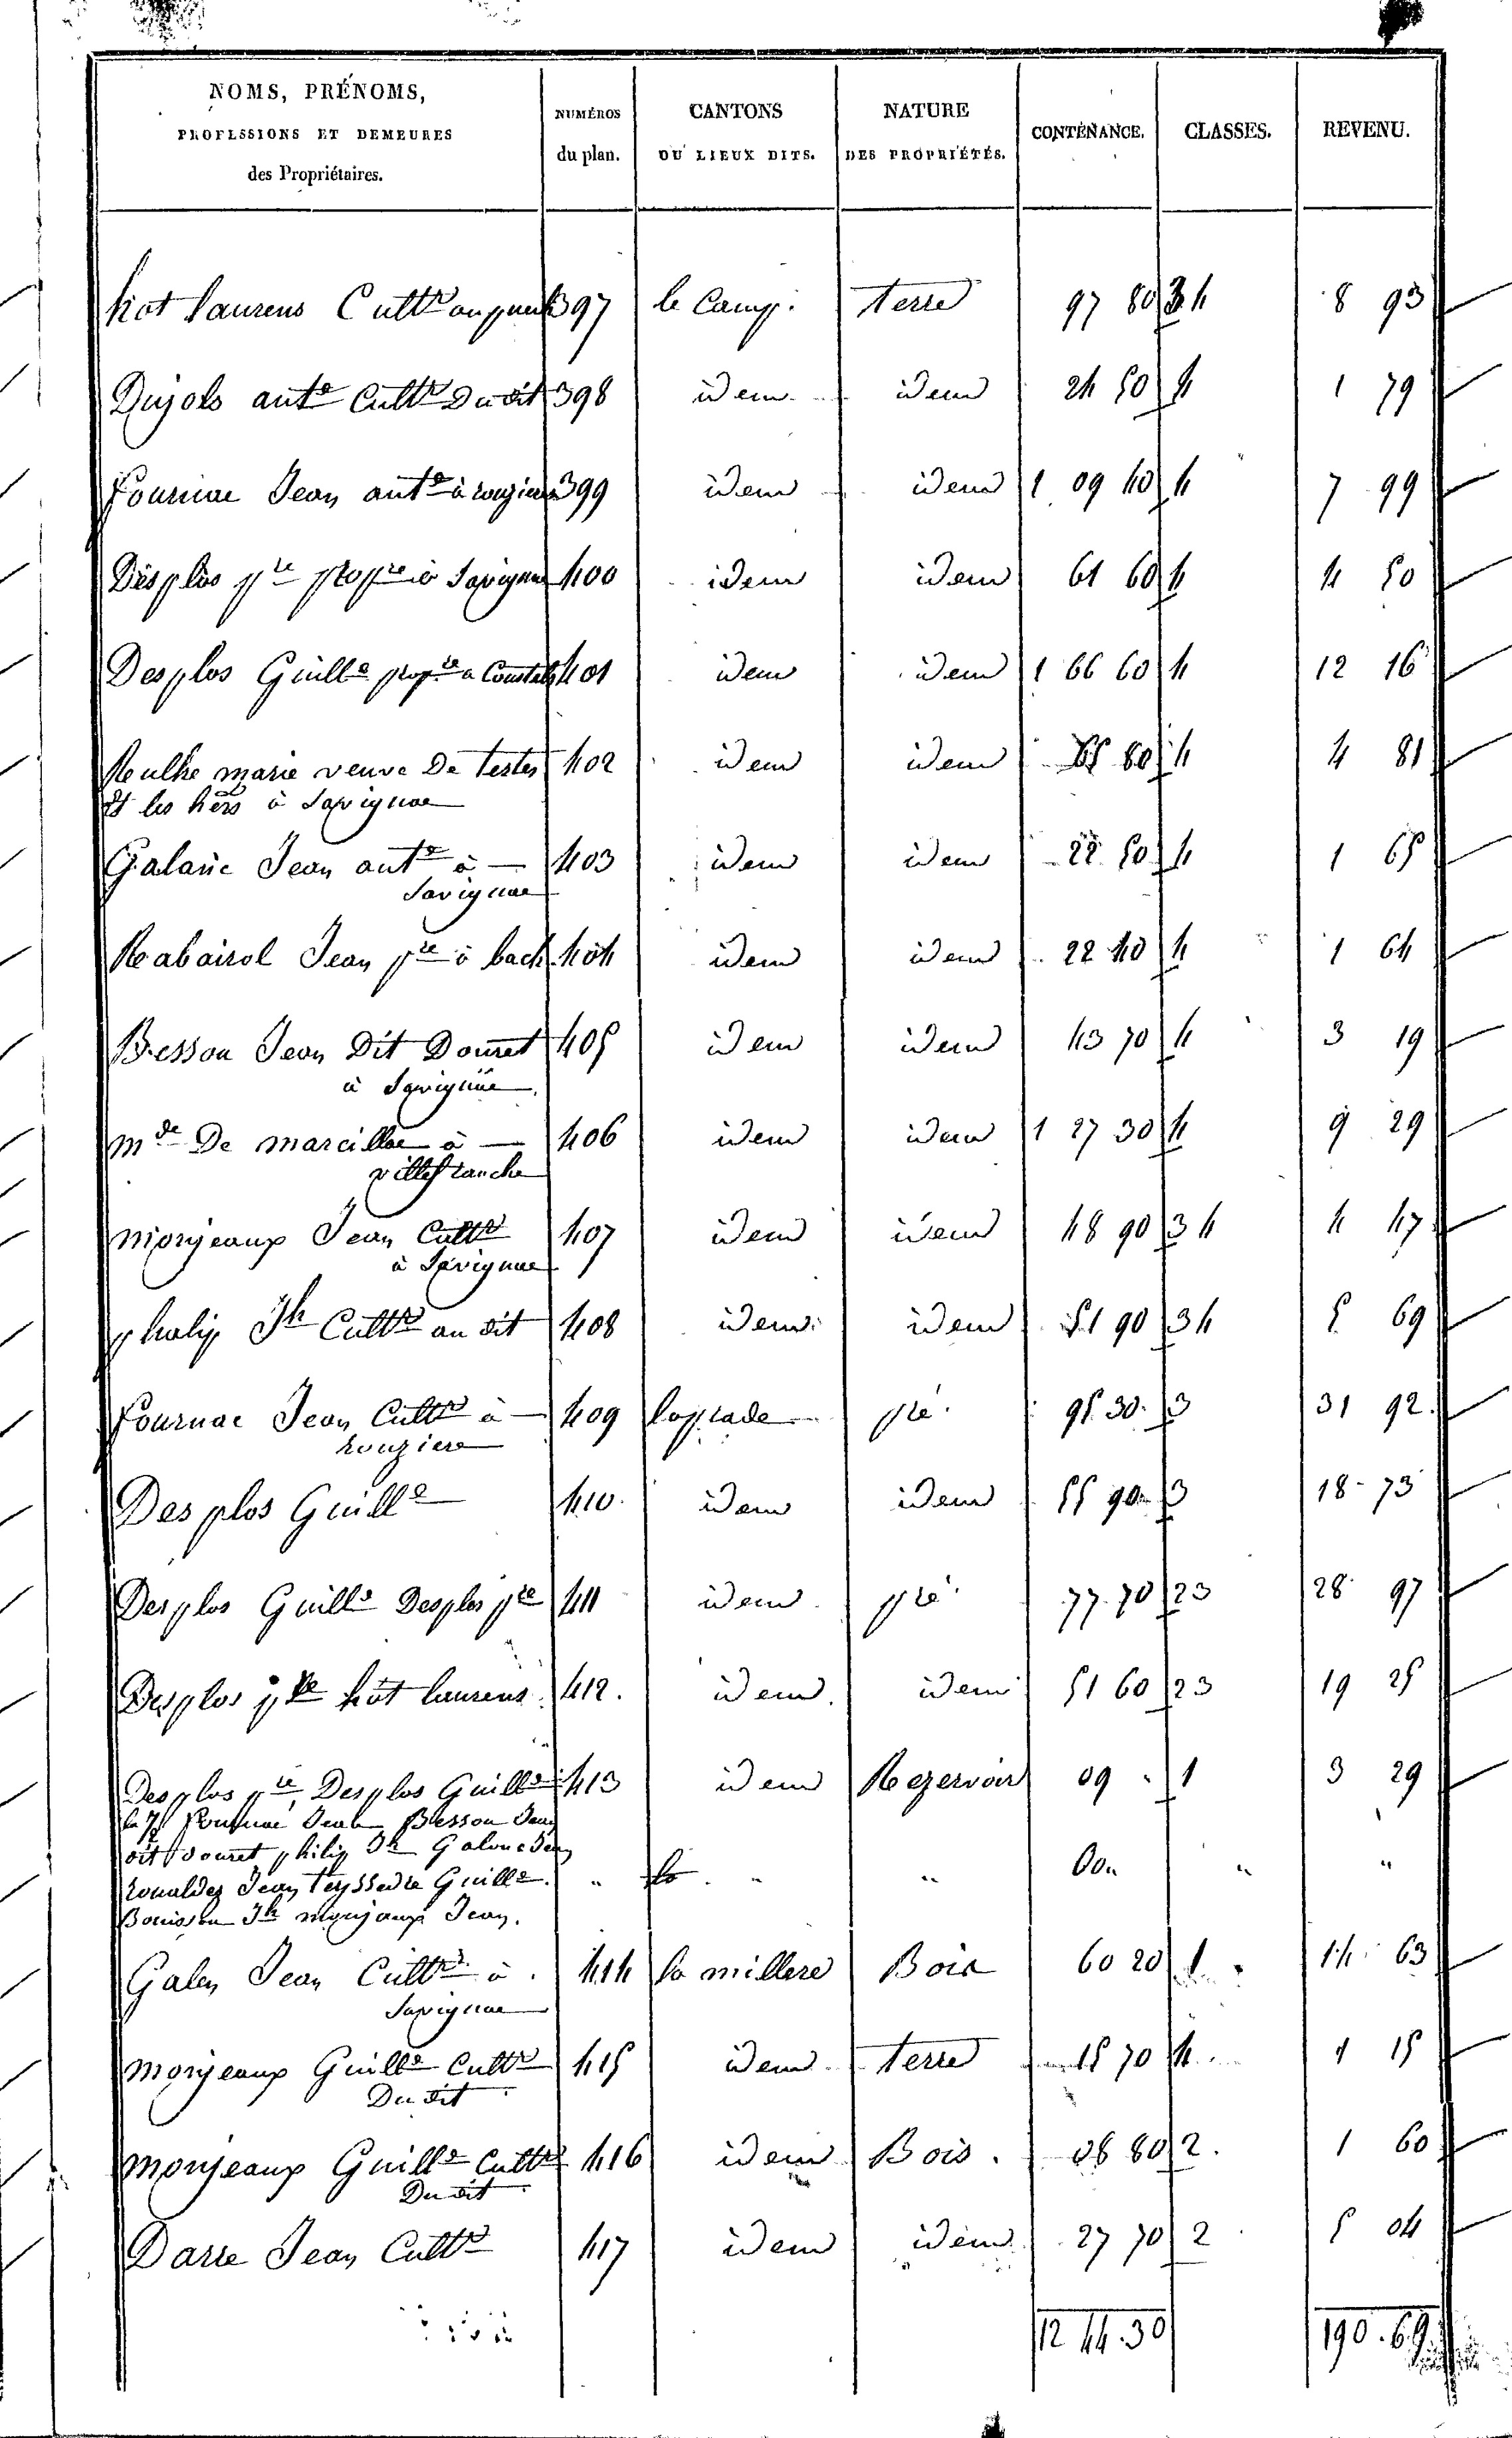 NOMS, PRÉNOMS, PROFESSIONS ET DEMEURES des Propriétaires. | NUMÉROS du plan. | CANTONS OU LIEUX DITS. | NATURE DES PROPRIÉTÉS. | CONTENANCE. | CLASSES. | REVENU.
hot Laurens Cultr 397 le Camp. terre 97 80 3 4 8 93
Dujols ante Cultr Du dit 398 idem idem 24 50 4 1 79
Fournac Jean ante à 399 idem idem 1 09 40 4 7 99
Desplos pre propre à Savignac 400 idem idem 61 60 4 4 50
Desplos Guille propre a 401 idem idem 1 66 60 4 12 16
Reulhe marie veuve De testes 402 idem idem 80 4 4 81
Et les hers à Savignac
Galanc Jean ante à — 403 idem idem 22 50 4 1 65
Savignac
Rabairol Jean pre à bach 404 idem idem 22 40 4 1 64
Besson Jean Dit Douret 405 idem idem 43 70 4 3 19
à Savignac
mde De marcillac à — 406 idem idem 1 27 30 4 9 29
villefranche
monjeaux Jean Cultr 407 idem idem 48 90 3 4 4 47
à Savignac
philip Jh Cultr au dit 408 idem idem 51 90 3 4 5 69
Fournac Jean Cultr à — 409 laprade pré 95 30 3 31 92
rouziere
Desplos Guille 410 idem idem 55 90 3 18 73
Desplos Guille Desplos pre 411 idem pré 77 70 2 3 28 97
Desplos pre hot laurens 412. idem idem 51 60 2 3 19 25
Desplos pre Desplos Guille 413 idem Rezervoir 09 " 1 3 29
Jean Besson Jean
dit douret philip Jh Galanc Jean
roualdez Jean teyssedre Guille. " " " 00 " " "
Bouisson Jh monjaux Jean.
Galen Jean Cultr à 414 la millere Bois 60 20 1 14 63
Savignac
monjeaux Guille Cultr 415 idem terre 15 70 4 1 15
Du dit
monjeaux Guille Cultr 416 idem Bois. 08 80 2. 1 60
Du dit
Darre Jean Cultr 417 idem idem 27 70 2 5 04
12 44.30 190.69